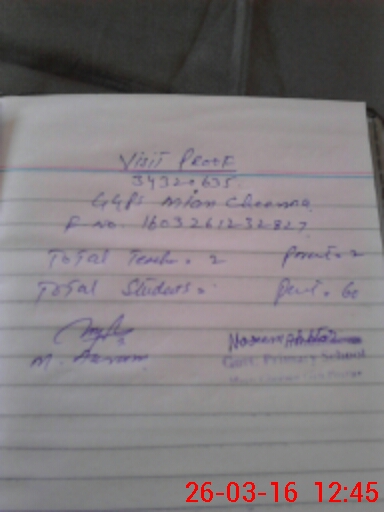 Visit Proof
34320635
GGPS Mian Channa
F No. 1603261232827
Total Teach = 2 Present = 2
Total Students = Pent = 60
M. Akram
Govt. Primary School
26-03-16 12:45